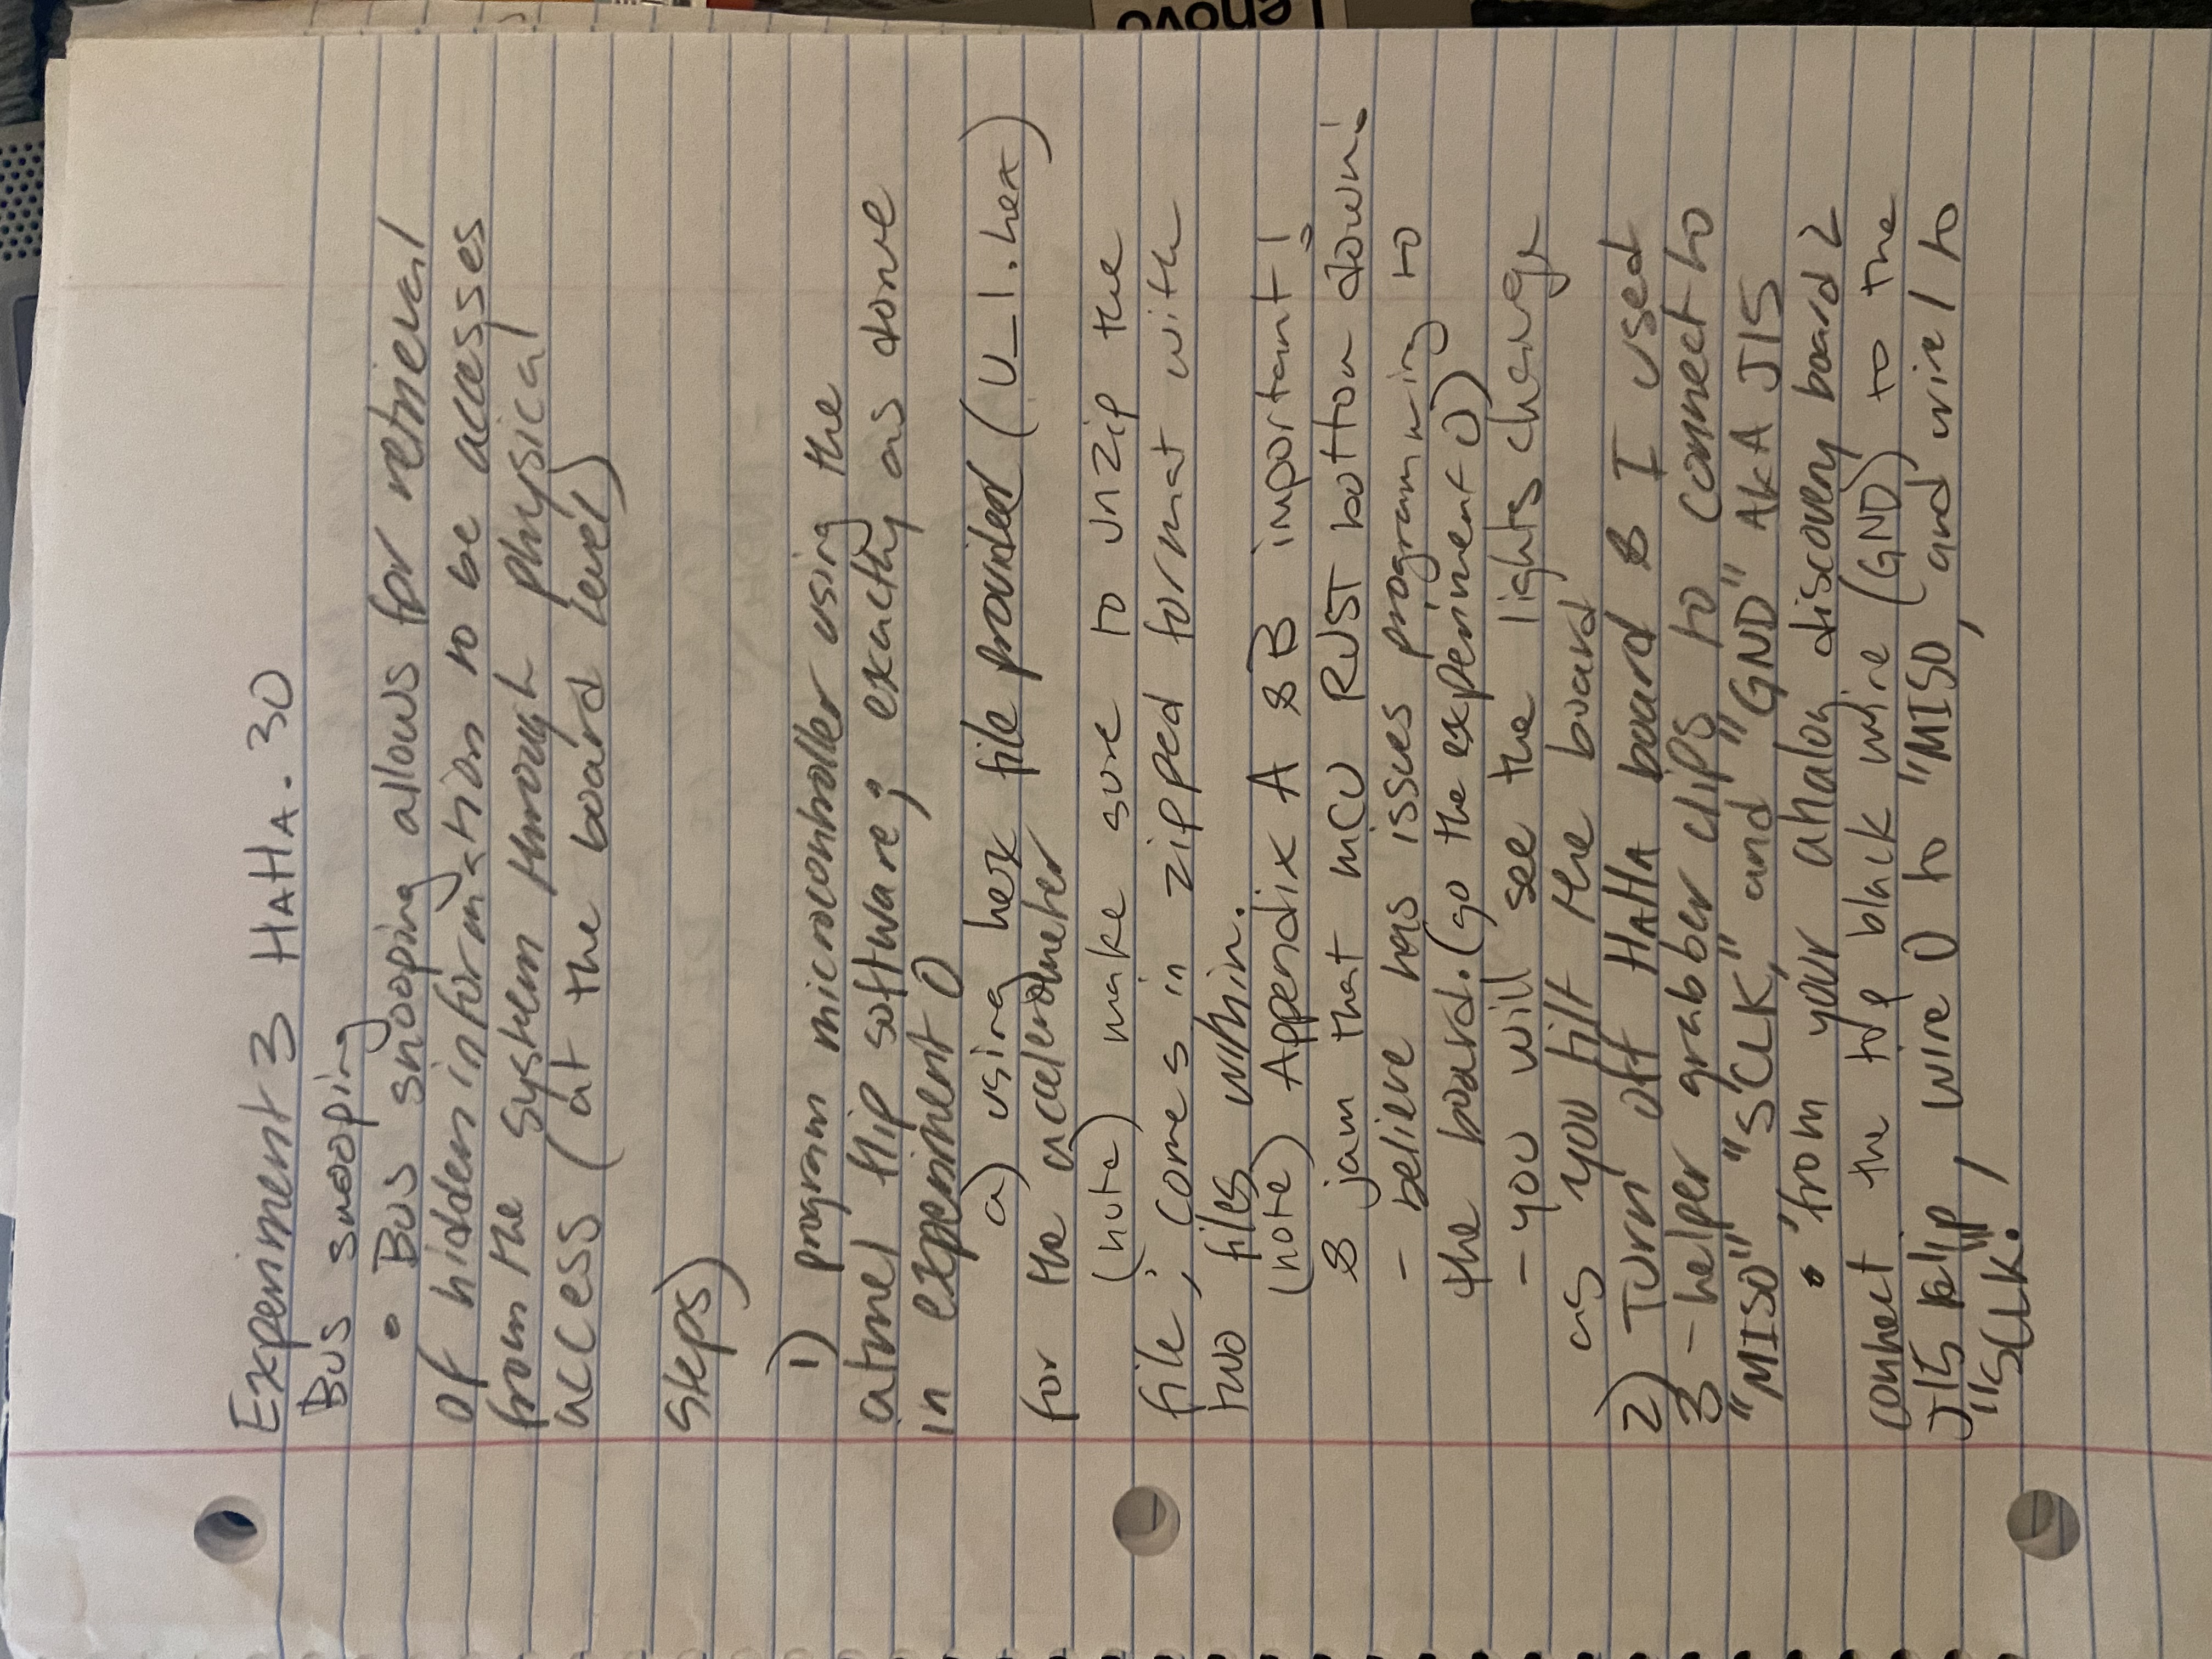 Experiment 3 HAHA. 30
Bus snooping
• Bus snooping allows for retrieval
of hidden information to be accesses
from the system through physical
access (at the board level)
steps)
1) program microcontroller using the
atmel flip software; exactly as done
in experiment 0
a) using hex file provided (U_1.hex)
for the accelerometer
(note) make sure to unzip the
file; comes in zipped format with
two files within.
(note) Appendix A & B important!
& jam that MCU RUST botton down!
- believe has issues programming to
the board. (go the experiment 0)
- you will see the lights change
as you tilt the board
2) Turn off HAHA board & I used
3 - helper grabber clips to connect to
"MISO", "SCLK," and "GND" AKA J15
• from your analog discovery board 2
connect the top black wire (GND) to the
J15 klip, wire 0 to "MISO, and wire 1 to
"SCLK."
Lenovo